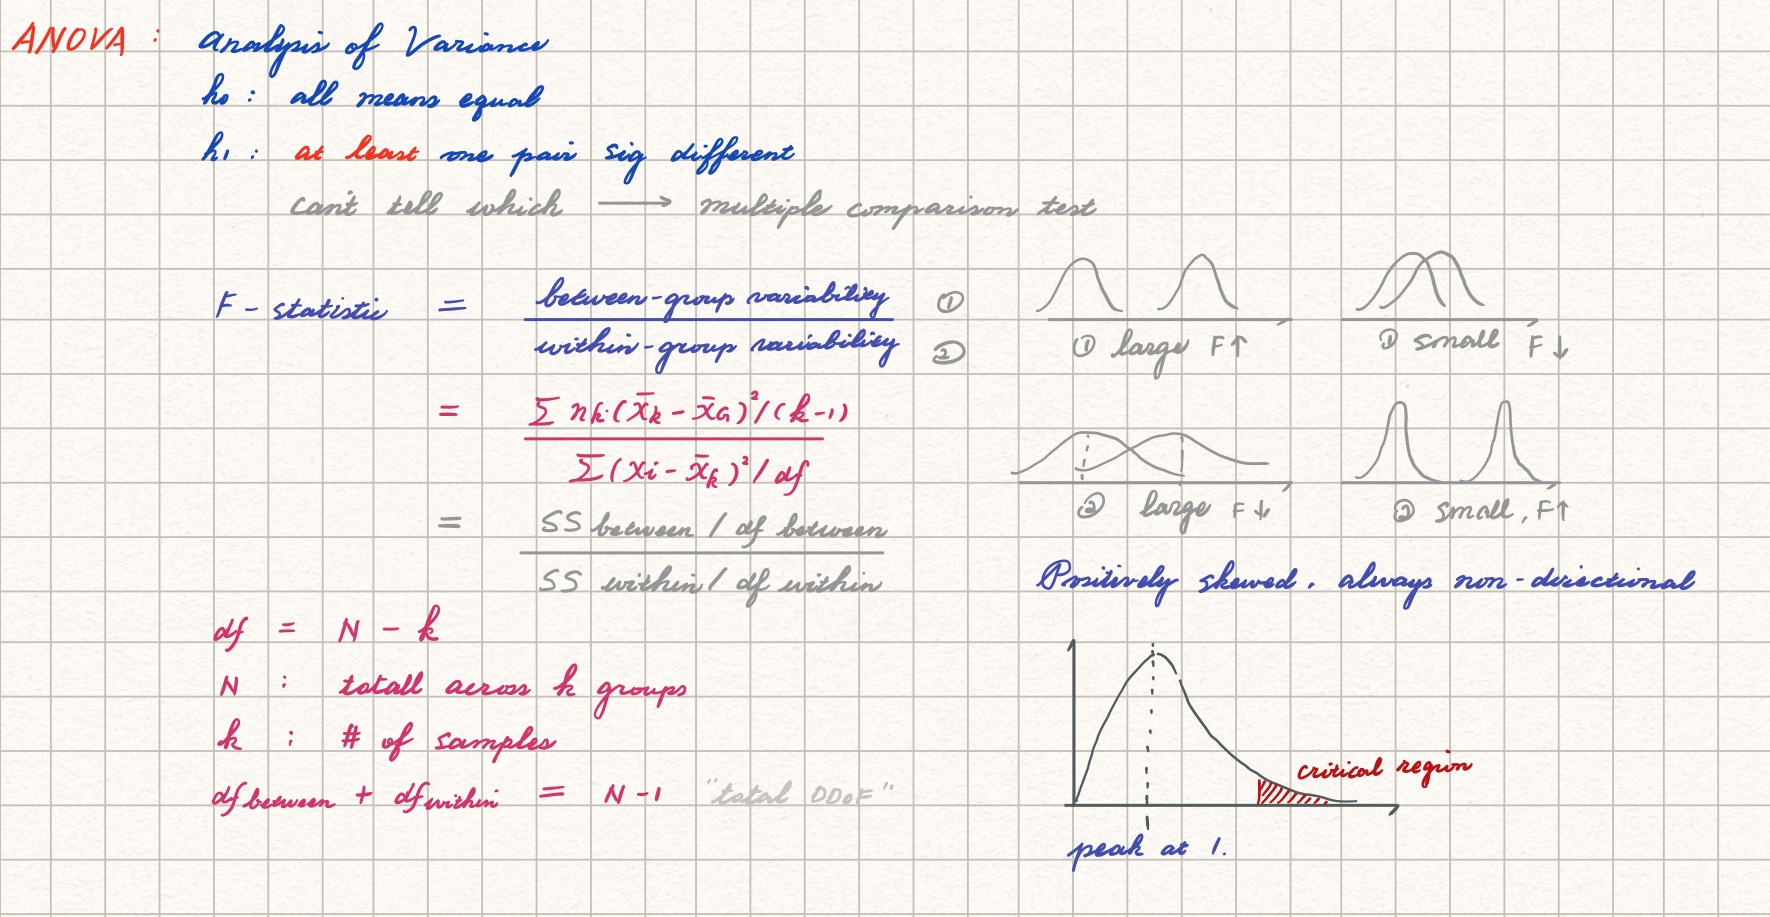 ANOVA : Analysis of Variance
h₀ : all means equal
h₁ : at least one pair sig different
can't tell which → multiple comparison test
F - statistic = between-group variability ①
within-group variability ②
= Σ nk·(x̄k - x̄G)²/(k-1)
Σ(xi - x̄k)²/df
= SS between / df between
SS within / df within
df = N - k
N : totall across k groups
k : # of samples
df between + df within = N-1 "total DDoF"
① large F↑
① small F↓
② large F↓
② small, F↑
Positively skewed, always non-directional
critical region
peak at 1.